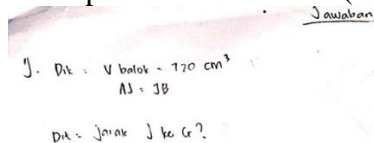 Jawaban
1. Dik : V balok = 720 cm³
AJ = JB
Dit = jarak J ke G?